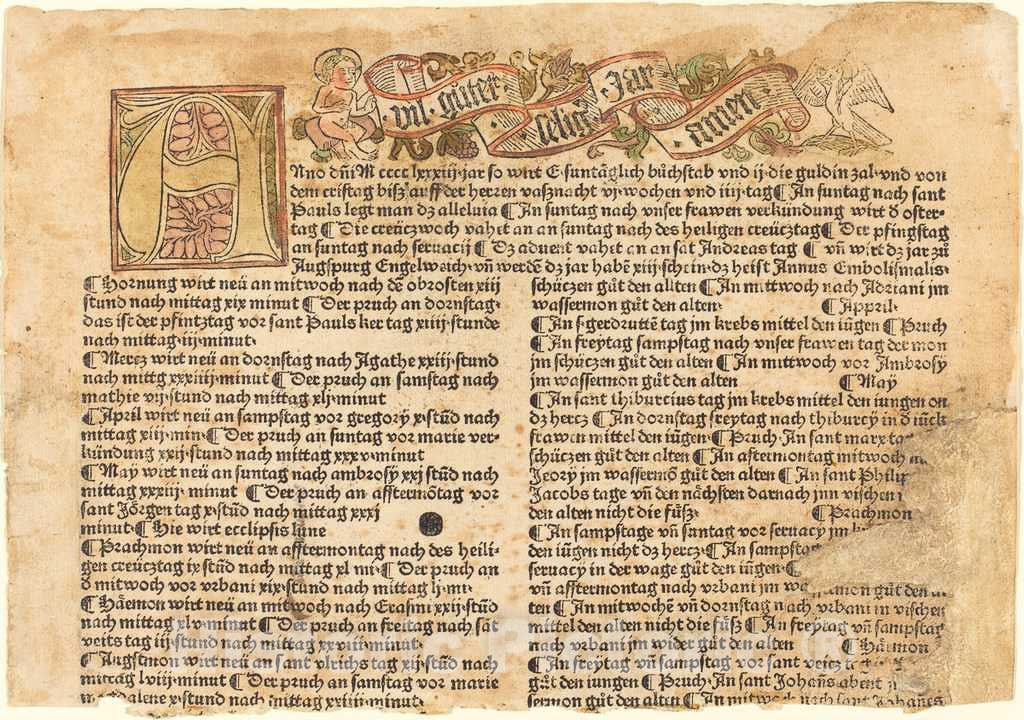 vil · guter · selig Jar
Anno dñi M cccc lxxxiiij · jar so wirt E · suntäglich bůchstab vnd ij · die guldin zal · vnd von
dem cristag bisz auff der herren vasznacht vj · wochen vnd iiij · tag ¶ An suntag nach sant
Pauls legt man dz alleluia ¶ An suntag nach vnser frawen verkündung wirt d oster-
tag ¶ Die creüczwoch vahet an an suntag nach des heiligen creücztag ¶ Der pfingstag
an suntag nach seruacij ¶ Dz aduent vahet an an sāt Andreas tag ¶ vñ wirt dz jar zů
Augspurg Engelweich · vñ werdē dz jar habē xiij · schein · dz heist Annus Embolismalis ·
¶ Hornung wirt neü an mitwoch nach dē obrosten xiij
stund nach mittag xix minut ¶ Der pruch an dornstag ·
das ist der pfintztag vor sant Pauls ker tag xiiij · stunde
nach mittag · iij · minut ·
¶ Mercz wirt neü an dornstag nach Agathe xxiij · stund
nach mittg xxxiiij · minut ¶ Der pruch an samstag nach
mathie vij · stund nach mittag xlj · minut
¶ April wirt neü an sampstag vor gregorÿ x · stūd nach
mittag xiij · min · ¶ Der pruch an suntag vor marie ver-
kündung xxij · stund nach mittag xxxv · minut
¶ May wirt neü an suntag nach ambrosÿ xxj stūd nach
mittag xxxiij · minut ¶ Der pruch an afftermōtag vor
sant Jörgen tag x · stūd nach mittag xxxj
minut · ¶ Hie wirt ecclipsis lune
¶ Prachmon wirt neü an afftermontag nach des heili-
gen creücztag ix stūd nach mittag xl mi · ¶ Der pruch an
d mitwoch vor vrbani xix · stund nach mittag lj · mi ·
¶ Häemon wirt neü an mitwoch nach Erasmi xxij · stūd
nach mittag xlv · minut ¶ Der pruch an freitag nach sāt
veits tag iij · stund nach mittag xxviij minut ·
¶ Augstmon wirt neü an sant vlrichs tag xij · stūd nach
mittag lviij · minut ¶ Der pruch an samstag vor marie
stund nach mittag xxiiij · minut ·
schüczen gůt den alten ¶ An mittwoch nach Adriani jm
wassermon gůt den alten · ¶ Appril ·
¶ An s · gerdruttē tag jm krebs mittel den iügen ¶ Pruch
¶ An freytag sampstag nach vnser frawen tag der mon
jm schüczen gůt den alten ¶ An mittwoch vor Ambrosÿ
jm wassermon gůt den alten ¶ May
¶ An sant thiburcius tag jm krebs mittel den iungen on
dz hercz ¶ An dornstag freytag nach thiburcÿ in d iück
frawen mittel den iügen · ¶ Pruch · An sant marx
schüczen gůt den alten ¶ An aftermontag mitwoch
Jeorÿ jm wassermō gůt den alten ¶ An sant
Jacobs tage vñ den nächsten darnach jnn vischen
den alten nicht die füsz · ¶ Prachmon
¶ An sampstage vñ suntag vor seruacy jm
den iügen nicht dz hercz · ¶ An sampstag
seruacy in der wage gůt den iügen · ¶
vñ afftermontag nach vrbani jm gůt den
ten ¶ An mitwochē vñ dornstag nach vrbani in vischen
mittel den alten nicht die füsz ¶ An freytag vñ sampstag
nach vrbani jm wider gůt den alten ¶ Häemon
¶ An freÿtag vñ sampstag vor sant
gůt den iungen ¶ Pruch · An sant Johañs abent
gůt den alten ¶ An nach sant